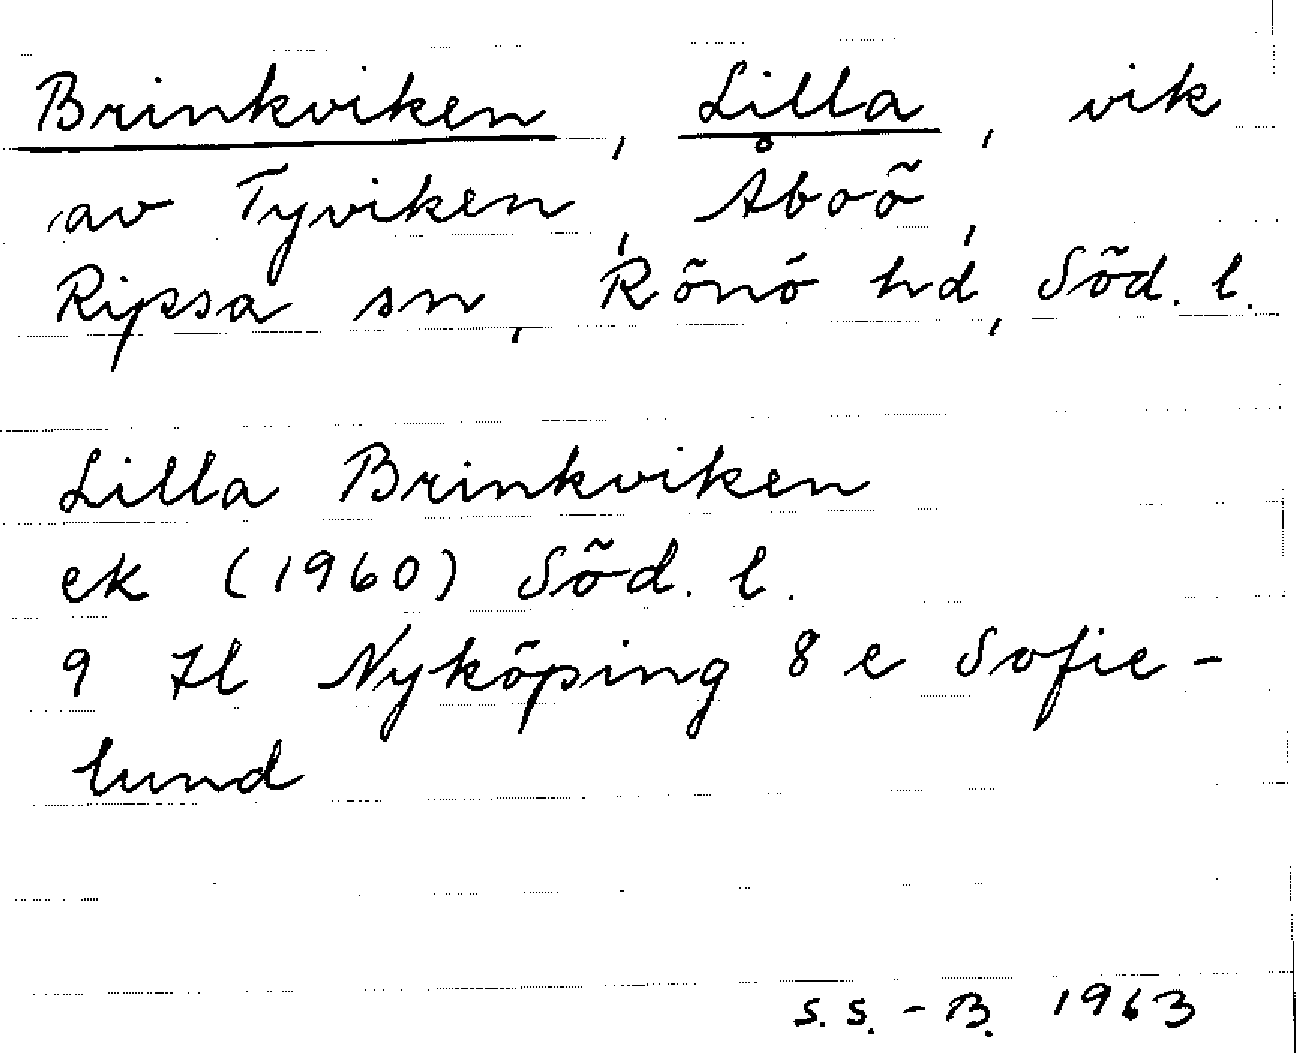 Brinkviken, Lilla, vik
av Tyviken, Åboö,
Ripsa sn, Rönö hd, Söd. l.
Lilla Brinkviken
ek (1960) Söd. l.
9 Hl Nyköping 8 e Sofie-
lund
S.S.-B. 1963